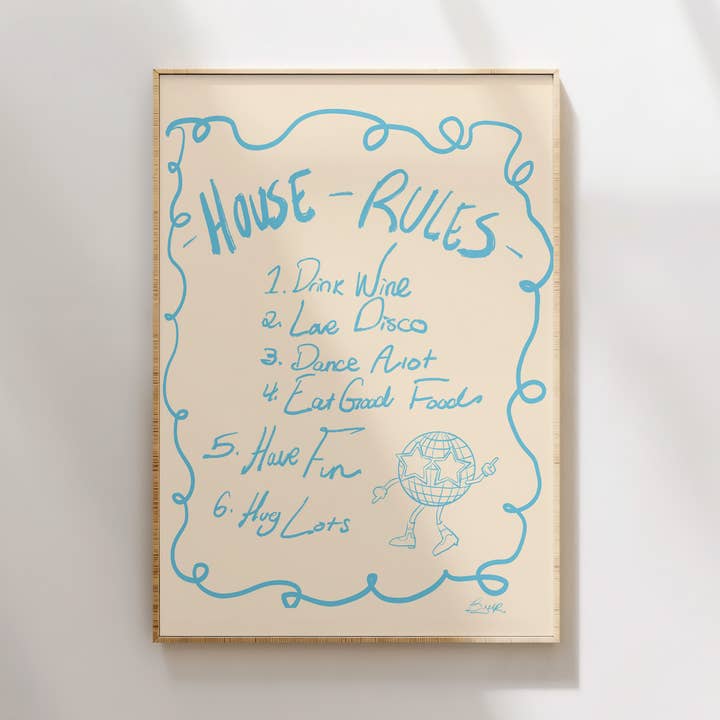 - HOUSE - RULES -
1. Drink Wine
2. Love Disco
3. Dance Alot
4. Eat Good Food
5. Have Fun
6. Hug Lots